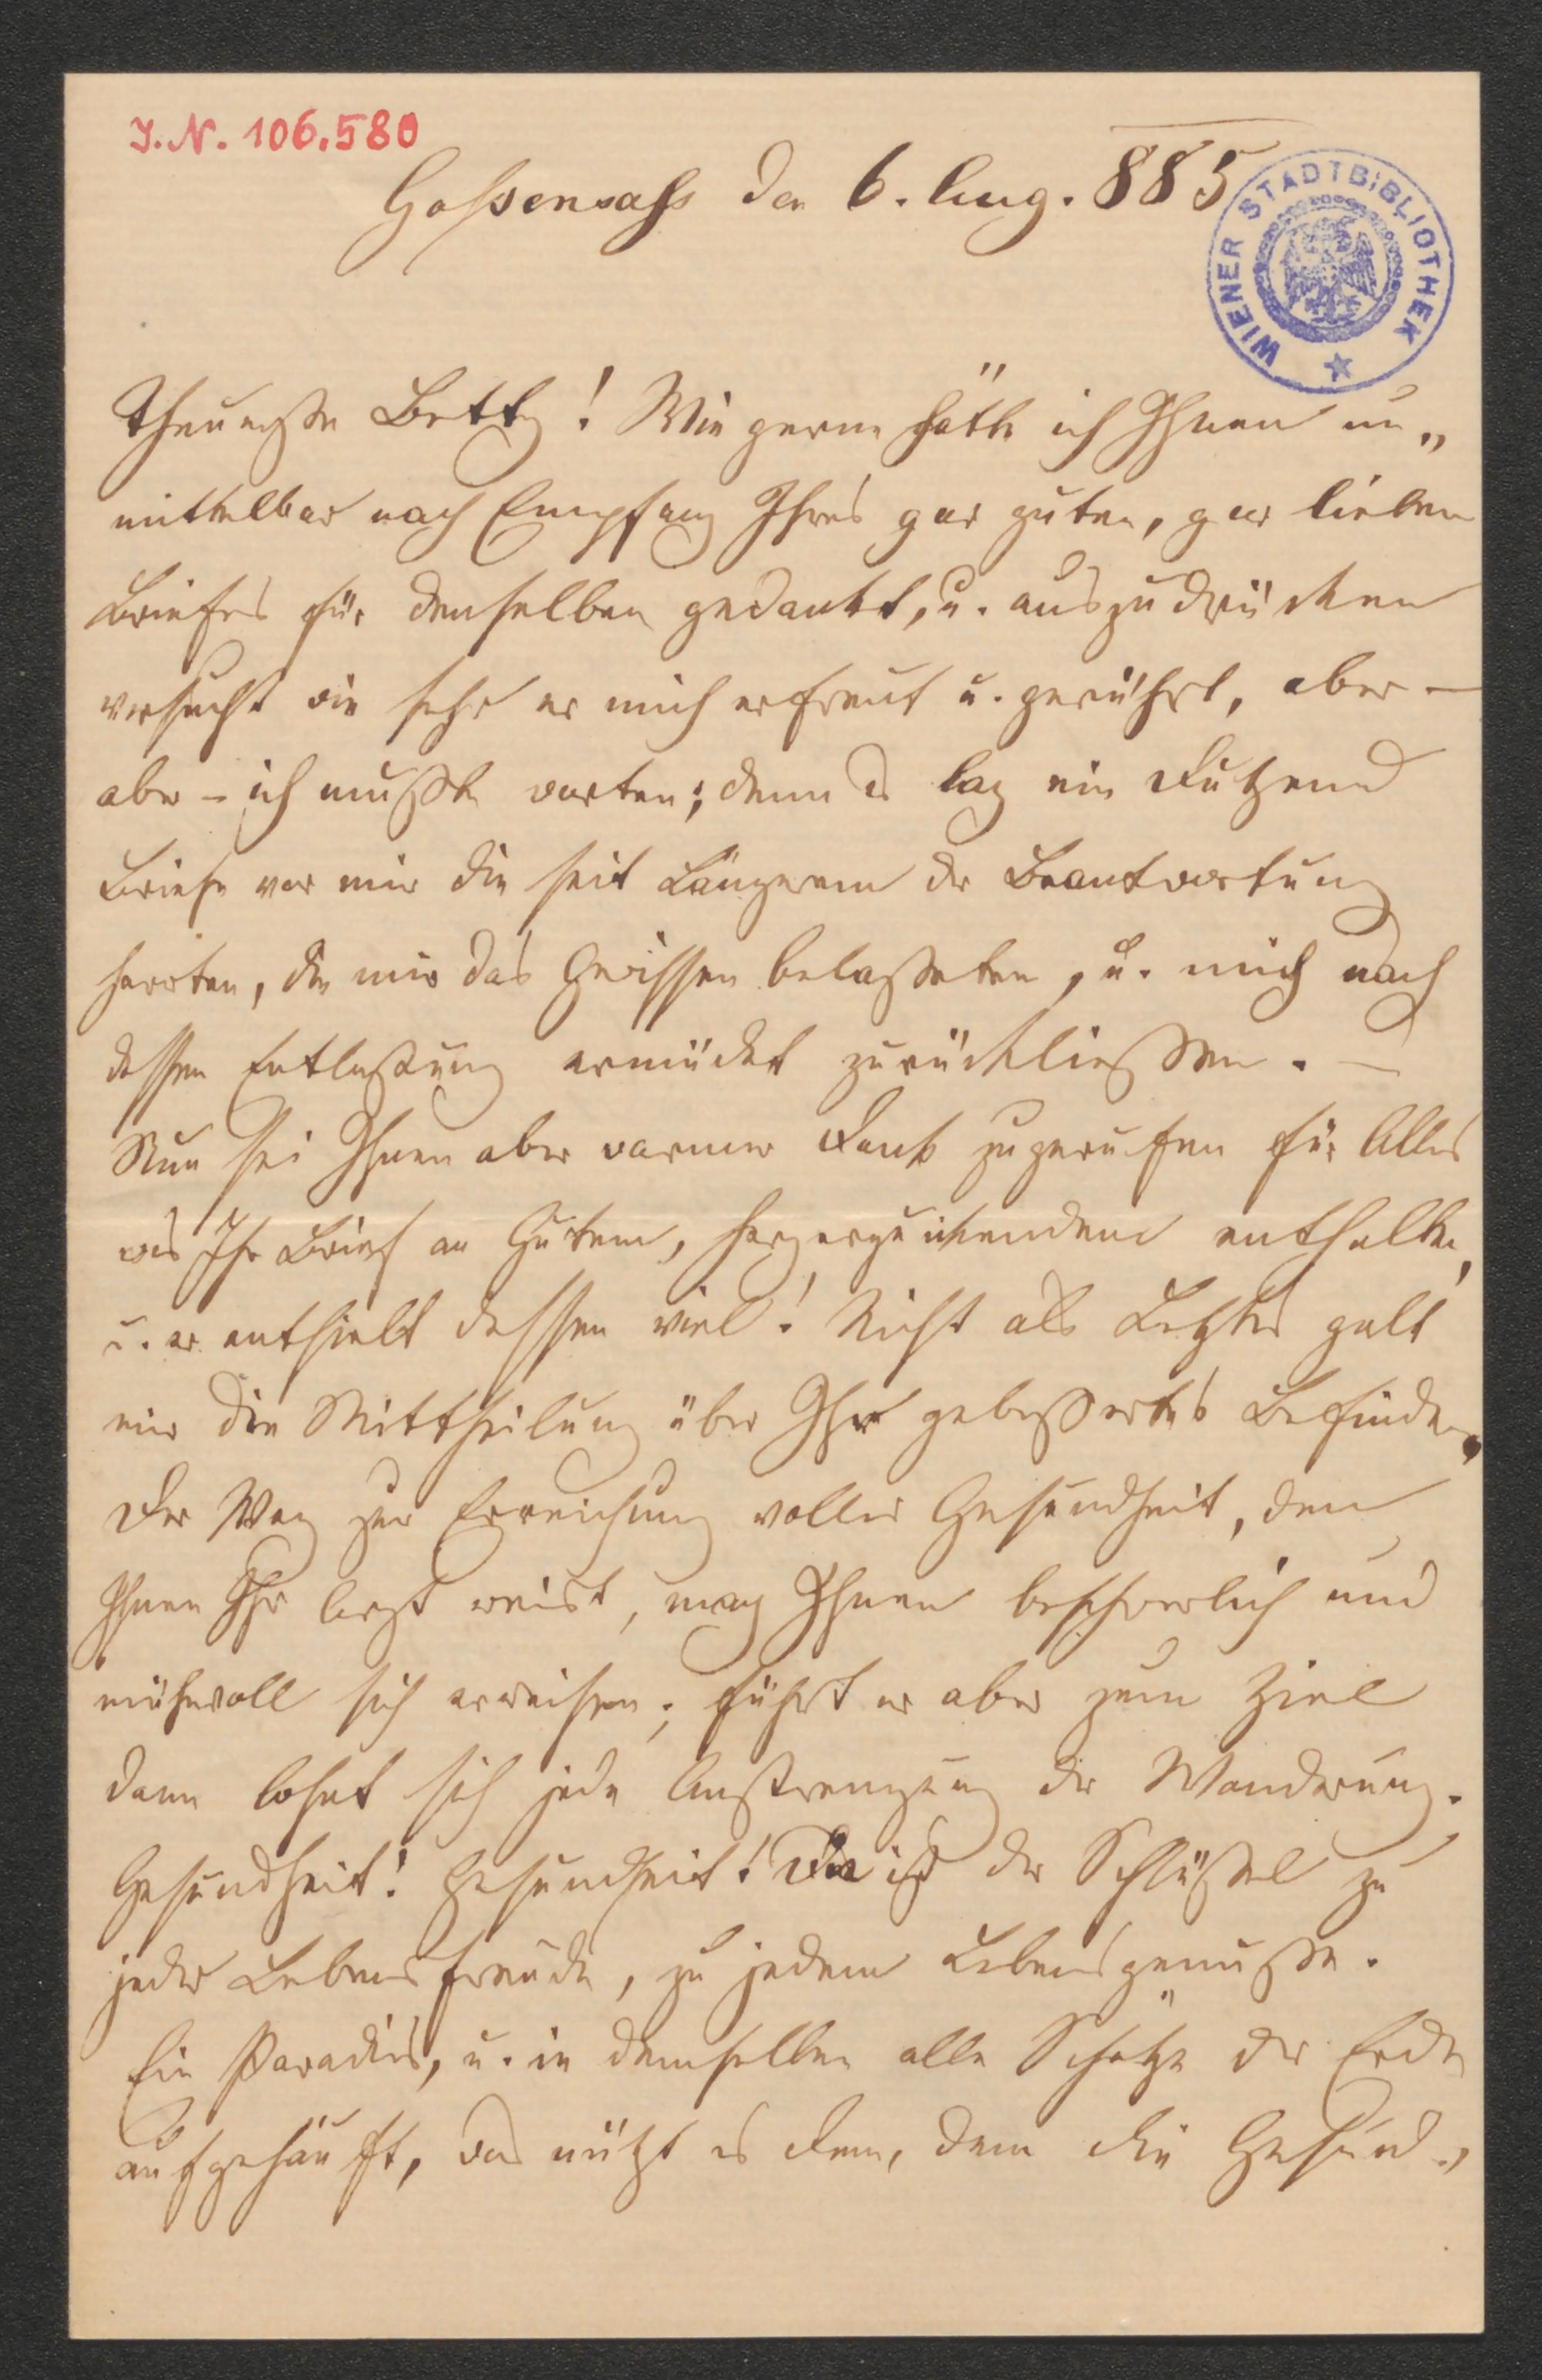 J. N. 106.580
Goßensaß den 6. Aug. 885
WIENER STADTBIBLIOTHEK
Theuerste Betty! Wie gerne hätte ich Ihnen un„
mittelbar nach Empfang Ihres gar guten, gar lieben
Briefes für denselben gedankt, u. auszudrücken
versucht wie sehr er mich erfreut u. gerührt, aber –
aber – ich mußte warten; denn es lag ein Dutzend
Briefe vor mir die seit Längerem der Beantwortung
harrten, die mir das Gewissen belasteten, u. mich nach
dessen Entlastung ermüdet zurückließen. –
Nun sei Ihnen aber warmer Dank zugerufen für Alles
was Ihr Brief an Gutem, herzerquickendem enthalten,
u. er enthielt dessen viel! Nicht als Letztes galt
mir die Mittheilung über Ihr gebessertes Befinden.
Der Weg zur Erreichung voller Gesundheit, den
Ihnen Ihr Arzt weist, mag Ihnen beschwerlich und
mühevoll sich erweisen; führt er aber zum Ziel
dann lohnt sich jede Anstrengung der Wanderung.
Gesundheit! Gesundheit! Die ist der Schlüssel zu
jeder Lebensfreude, zu jedem Lebensgenusse.
Ein Paradies, u. in demselben alle Schätze der Erde
aufgehäuft, was nützt es dem, dem die Gesund„